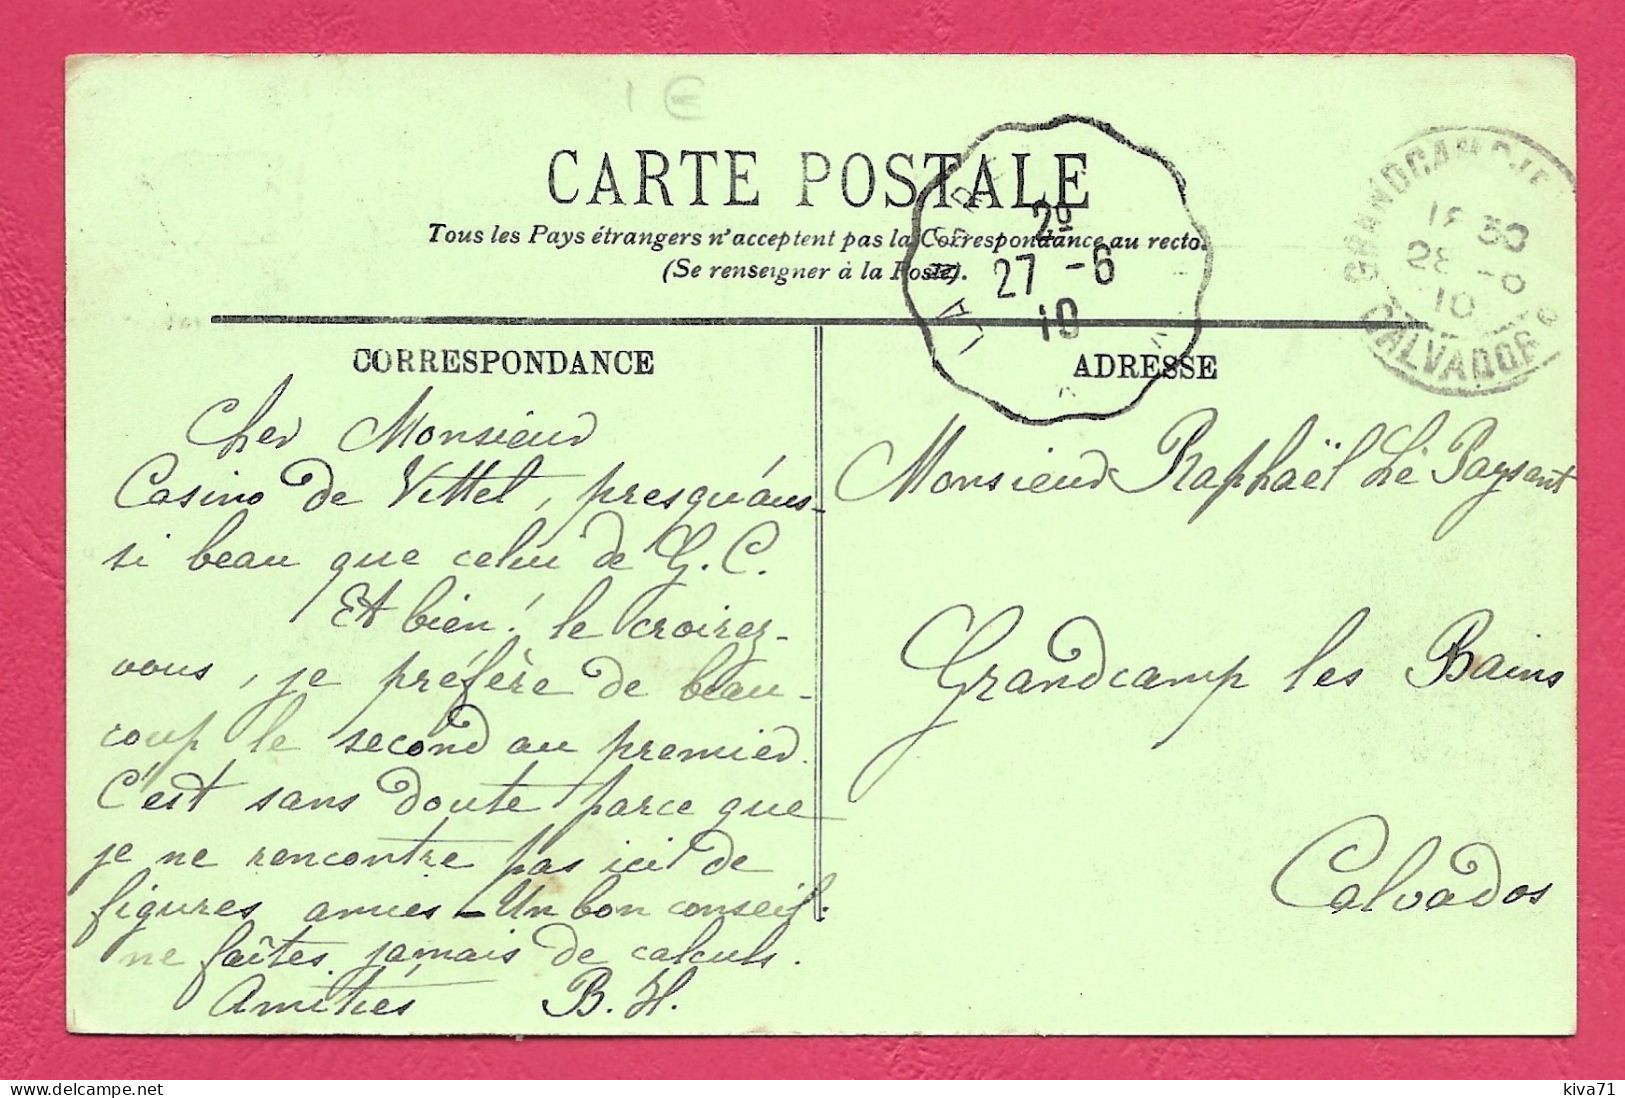 1 €
CARTE POSTALE
Tous les Pays étrangers n'acceptent pas la Correspondance au recto.
(Se renseigner à la Poste).
2º
27 -6
10
GRANDCAMP
30
28 -6
10
CALVADOS
CORRESPONDANCE
ADRESSE
Cher Monsieur
Casino de Vittel, presqu'aus-
si beau que celui de G. C.
Et bien! le croirez-
vous, je préfère de beau-
coup le second au premier.
C'est sans doute parce que
je ne rencontre pas ici de
figures amies - Un bon conseil:
ne faîtes jamais de calculs.
Amitiés B. H.
Monsieur Raphaël Le Paysant
Grandcamp les Bains
Calvados
delcampe.net
kiva71